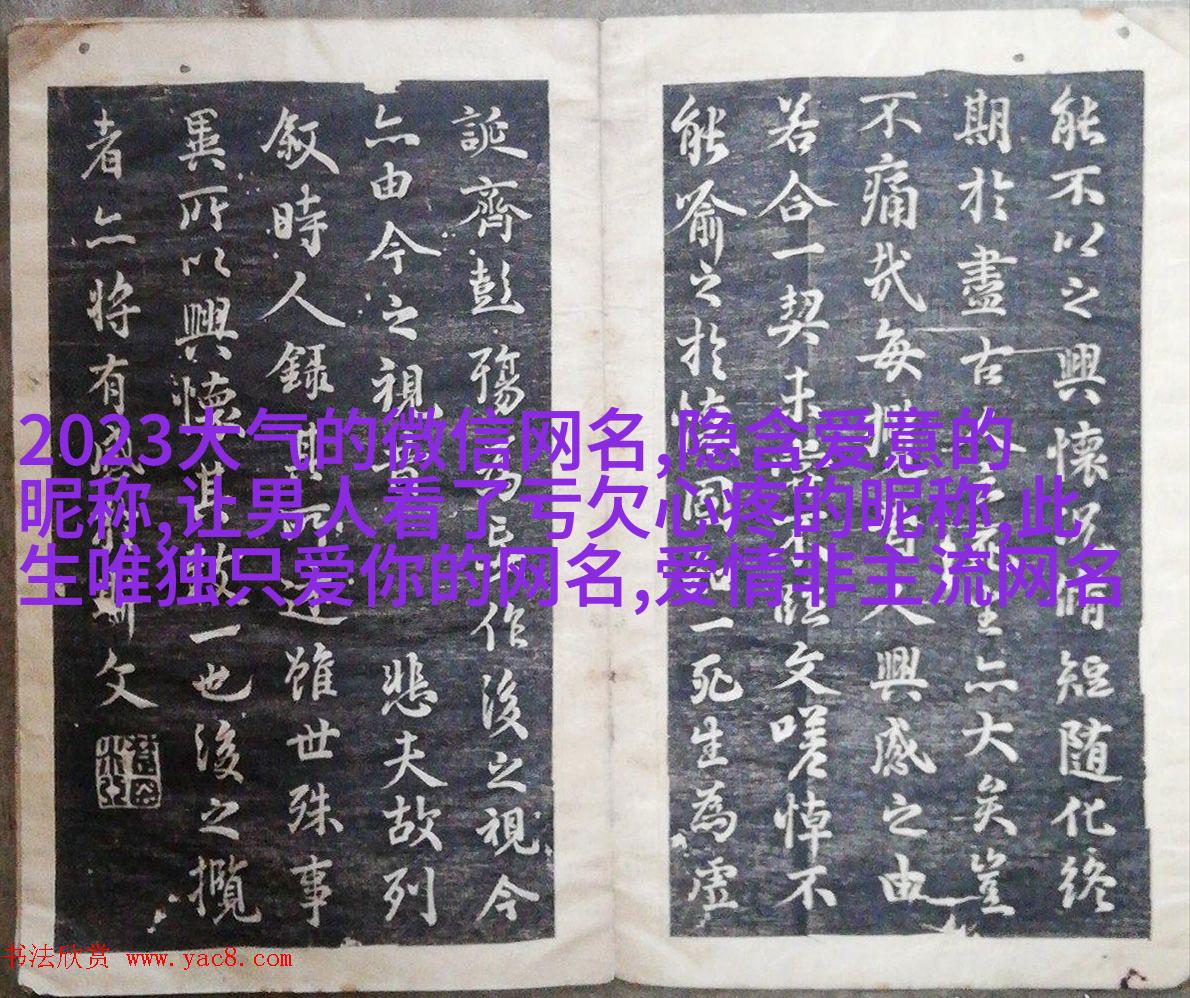 2023大气的微信网名,隐含爱意的
昵称,让男人看了亏欠心疼的昵称,此
生唯独只爱你的网名,爱情非主流网名
能不以之興懷況脩短随化終
期於盡古人云死生亦大矣豈
不痛哉每攬昔人興感之由
若合一契未嘗不臨文嗟悼不
能喻之於懷固知一死生為虛
誕齊彭殤為妄作後之視今
亦由今之視昔悲夫故列
敘時人錄其所述雖世殊事
異所以興懷其致一也後之攬
者亦将有感於斯文
书法欣赏 www.yac8.com